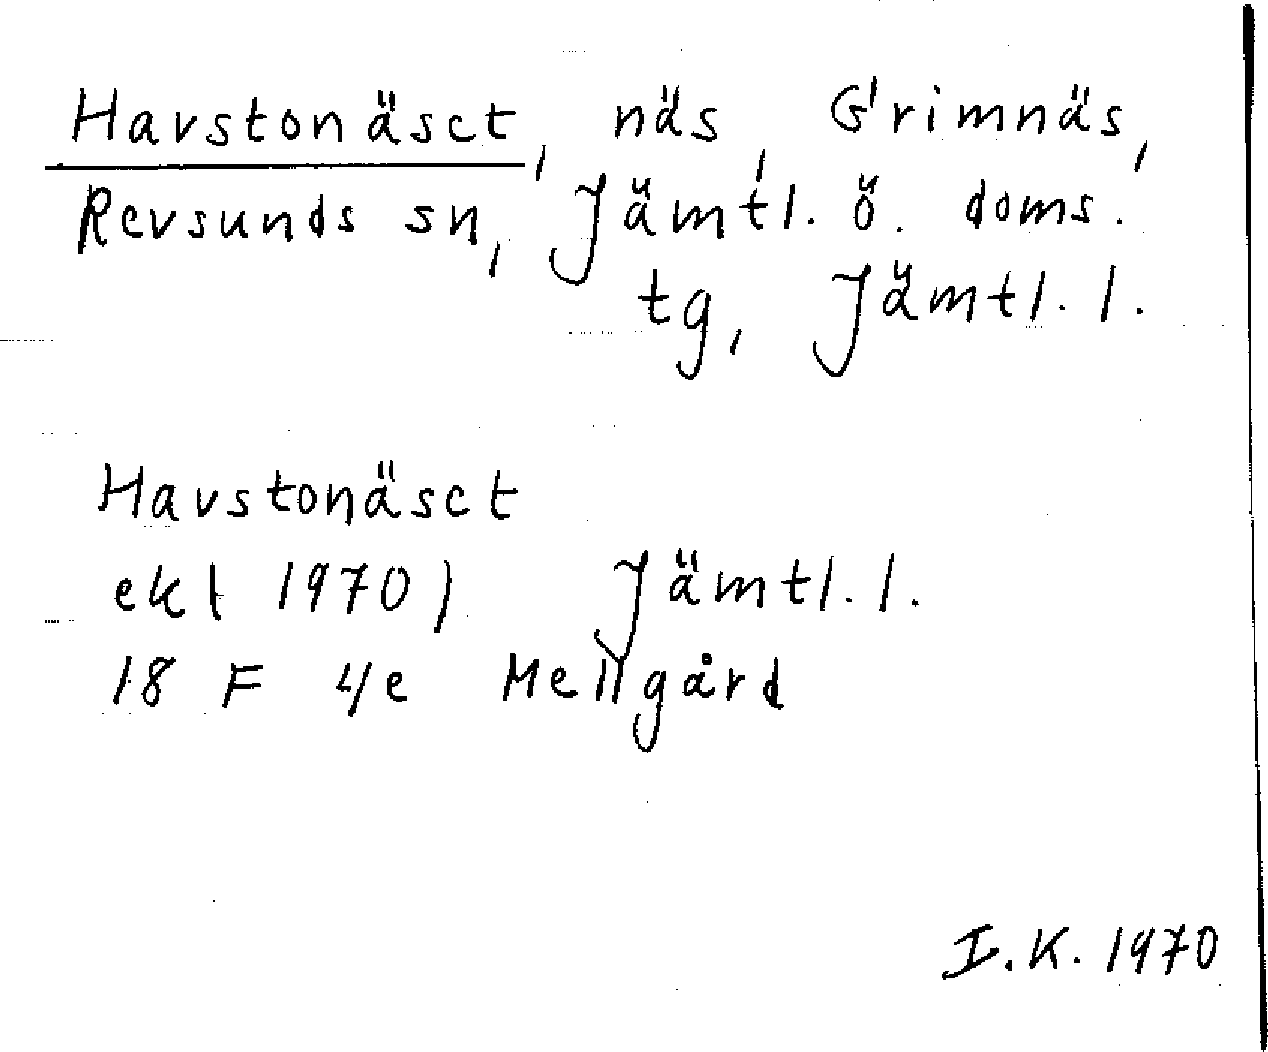 Havstonäset, näs, Grimnäs,
Revsunds sn, Jämtl. ö. doms.
tg, Jämtl. l.
Havstonäset
ekl 1970) Jämtl. l.
18 F 4/e Mellgård
I.K. 1970